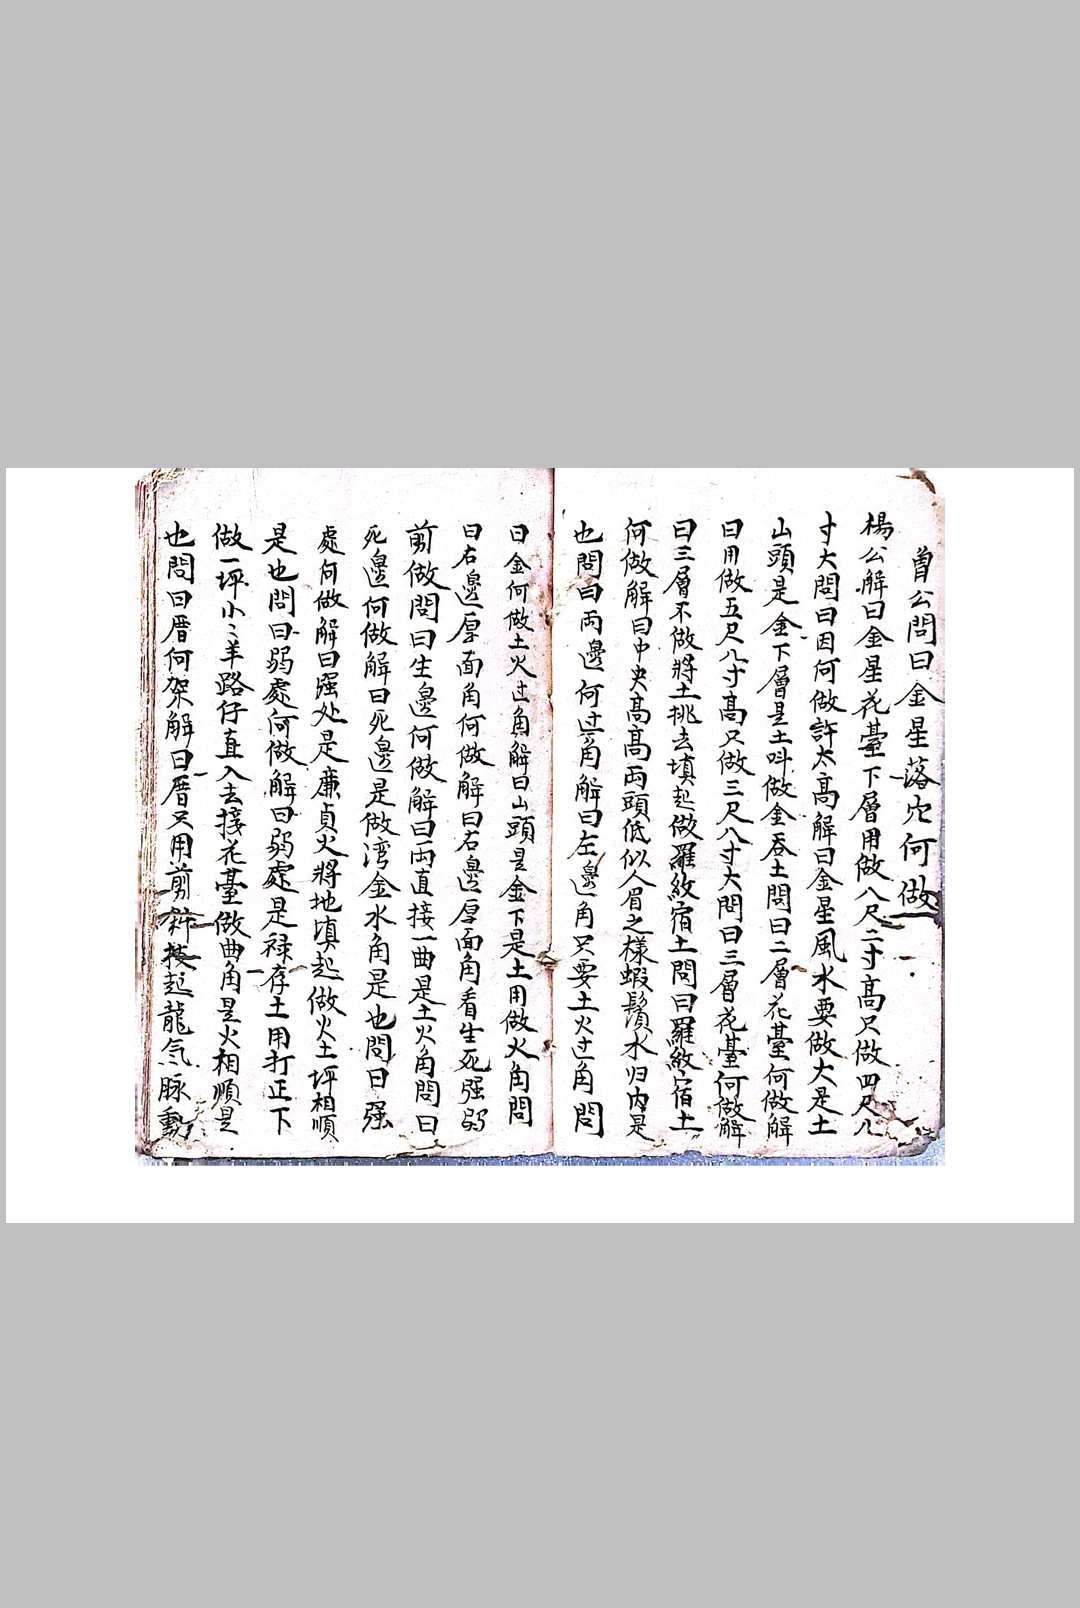 曾公問曰金星落穴何做
楊公解曰金星花臺下層用做八尺二寸高只做四尺八
寸大問曰因何做許太高解曰金星風水要做大是土
山頭是金下層是土呌做金吞土問曰二層花臺何做解
曰用做五尺八寸高只做三尺八寸大問曰三層花臺何做解
曰三層不做將土挑去填起做羅紋宿土問曰羅紋宿土
何做解曰中央高高両頭低似人眉之樣蝦鬚水归内是
也問曰両邊何过角解曰左邊一角只要土火过角問
曰金何做土火过角解曰山頭是金下是土用做火角問
曰右邊厚面角何做解曰右邊厚面角看生死强弱
前做問曰生邊何做解曰両直接一曲是土火角問曰
死邊何做解曰死邊是做湾金水角是也問曰强
處何做解曰强处是廉貞火將地填起做火土坪相順
是也問曰弱處何做解曰弱處是禄存土用打正下
做一坪小〻羊路仔直入去接花臺做曲角是火相順是
也問曰厝何架解曰厝只用剪接起龍気脉動